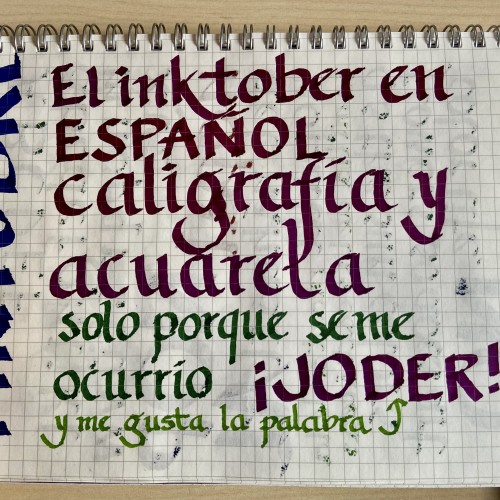 El inktober en
ESPAÑOL
caligrafía y
acuarela
solo porque se me
ocurrio ¡JODER!
y me gusta la palabra J